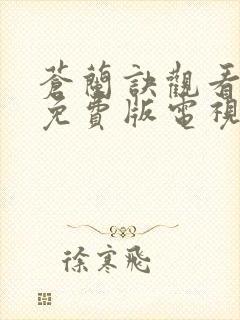 蒼蘭訣觀看
免費版電視
徐寒飛